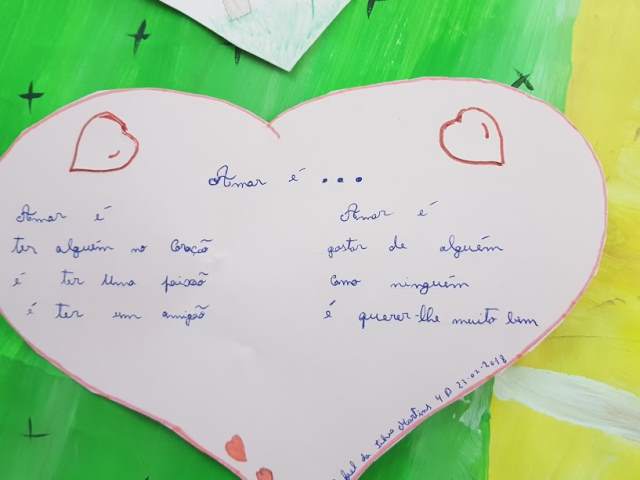 Amar é ...
Amar é
ter alguém no Coraçaõ
é ter Uma paixaõ
é ter um amigaõ
Amar é
gostar de alguém
como ninguém
é querer-lhe muito bem
da Silva Martins 4 D 22-02-2018